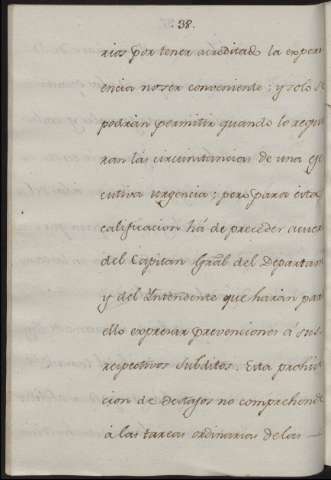 .38.
rios por tener acreditado la experi
encia no ser conveniente; y solo se
podrán permitir quando lo requie
ran las circunstancias de una eje
cutiva urgencia; pero para esta
calificacion há de preceder acuer
del Capitan Gral del Departam
y del Intendente que harán para
ello expresar prevenciones á sus
respectivos Subditos. Esta prohivi
cion de Destajos no comprehende
á las tareas ordinarias de las